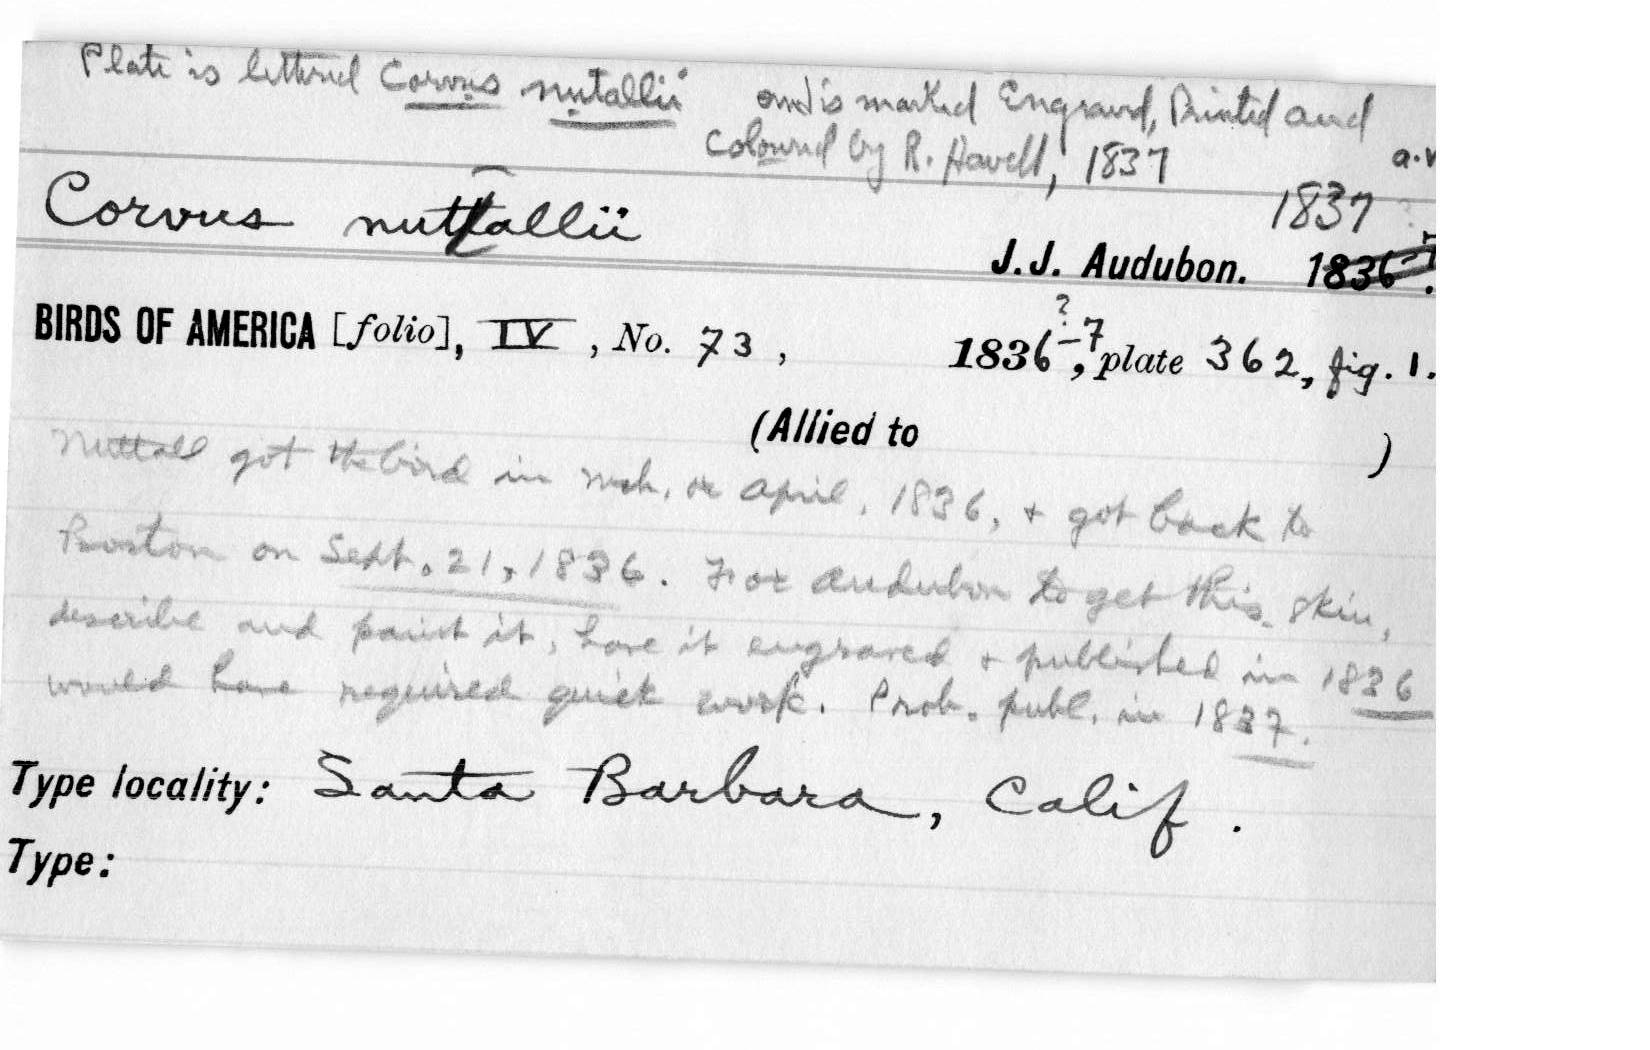 Plate is lettered Corvus nutallii and is marked Engraved, Printed and
Coloured by R. Havell, 1837
1837 ?
Corvus nuttallii
J.J. Audubon. 1836-7.
BIRDS OF AMERICA [folio], IV, No. 73, 1836?-7, plate 362, fig. 1.
(Allied to )
Nuttall got the bird in Mch. or April, 1836, + got back to
Boston on Sept. 21, 1836. For Audubon to get this skin,
describe and paint it, have it engraved + published in 1836
would have required quick work. Prob. publ. in 1837.
Type locality: Santa Barbara, Calif.
Type: